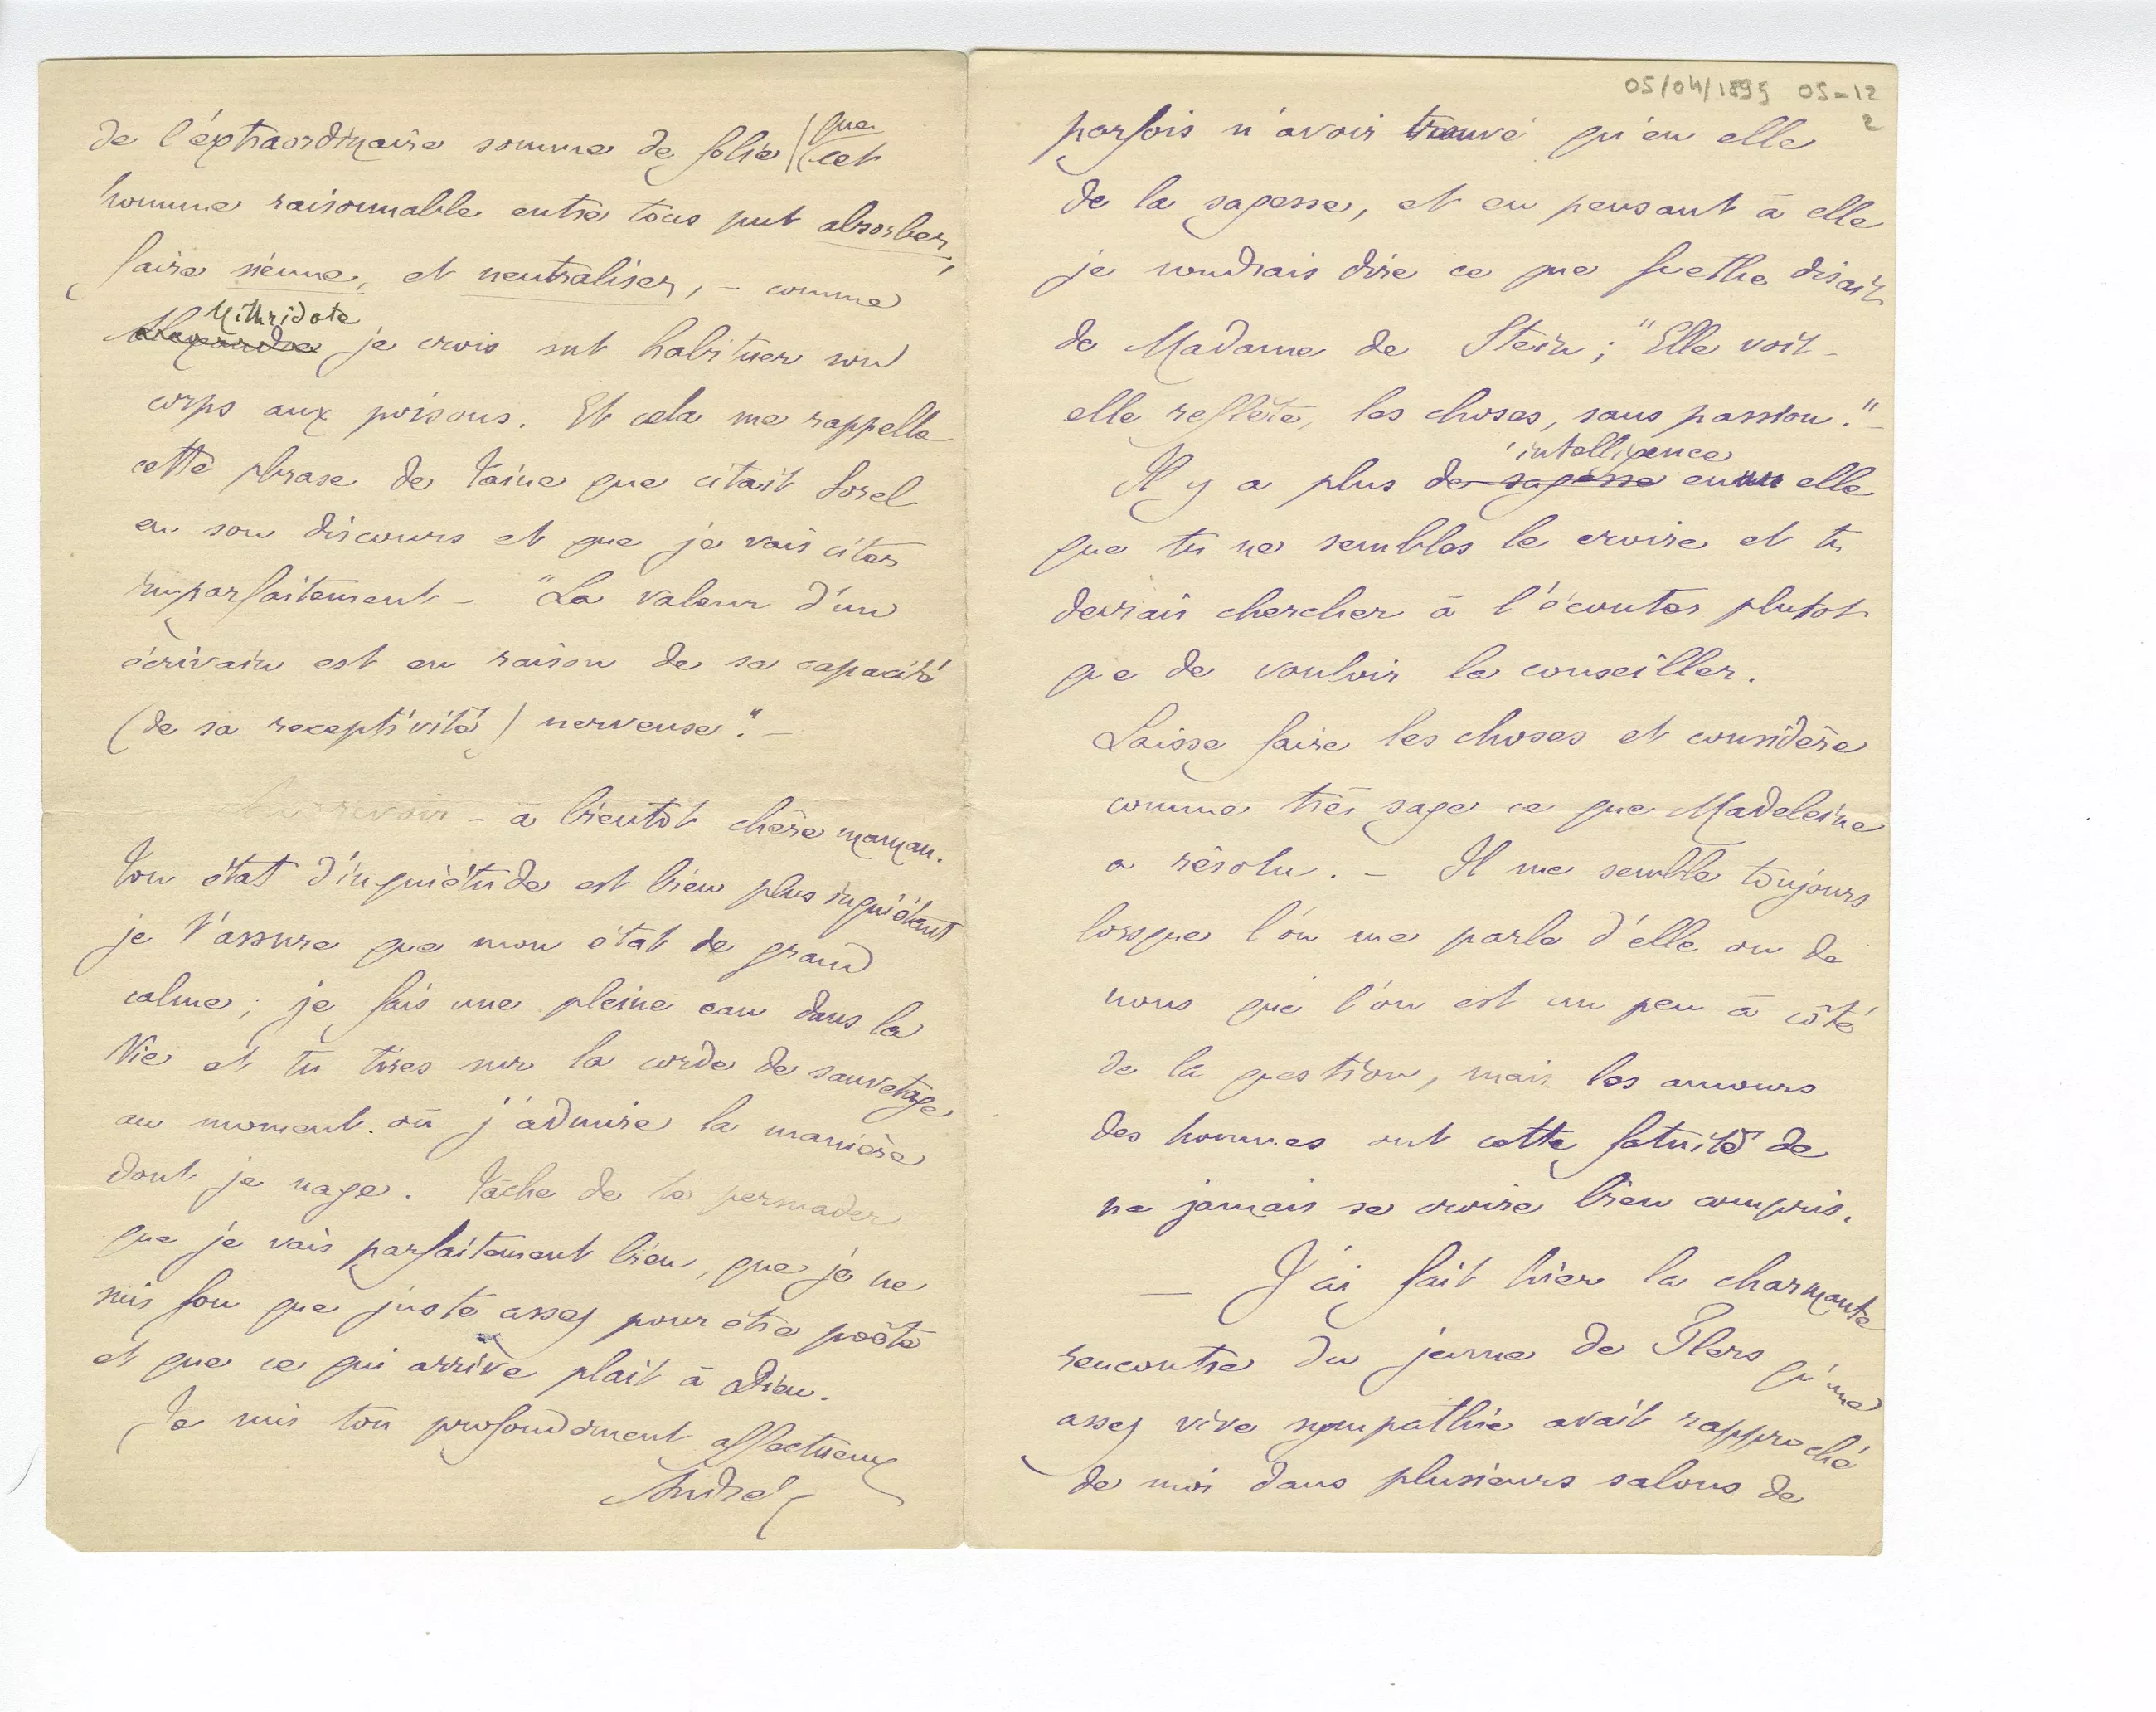 de l'éxtraordinaire somme de folie (que
cet
homme raisonnable entre tous put absorber,
faire sienne, et neutraliser, – comme
Alexandre Mithridate je crois sut habituer son
corps aux poisons. Et cela me rappelle
cette phrase de Taine que citait Sorel
en son discours et que je vais citer
imparfaitement – "La valeur d'un
écrivain est en raison de sa capacité
(de sa receptivité) nerveuse." –
Au revoir – à bientôt chère maman.
Ton état d'inquiétude est bien plus inquiétant
je t'assure que mon état de grand
calme ; je fais une pleine eau dans la
Vie et tu tires sur la corde de sauvetage
au moment où j'admire la manière
dont je nage. Tâche de te persuader
que je vais parfaitement bien, que je ne
suis fou que juste assez pour être poète
et que ce qui arrive plait à Dieu.
Je suis ton profondement affectueux
André
05/04/1895 05-12
2
parfois n'avoir trouvé qu'en elle
de la sagesse, et en pensant à elle
je voudrais dire ce que Gœthe disait
de Madame de Stein ; "Elle voit –
elle reflète, les choses, sans passion." –
Il y a plus de sagesse intelligence en elle
que tu ne sembles le croire et tu
devrais chercher à l'écouter plutot
que de vouloir la conseiller.
Laisse faire les choses et considère
comme très sage ce que Madeleine
a résolu. – Il me semble toujours
lorsque l'on me parle d'elle ou de
nous que l'on est un peu à côté
de la question, mais les amours
des hommes ont cette fatuité de
ne jamais se croire bien compris.
— J'ai fait hier la charmante
rencontre du jeune de Flers qu'une
assez vive sympathie avait rapproché
de moi dans plusieurs salons de